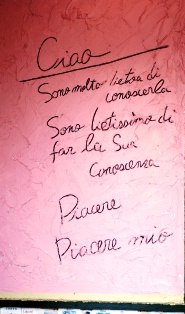 Ciao
Sono molto lieta di
conoscerla
Sono lietissimo di
far la Sua
Conoscenza
Piacere
Piacere mio